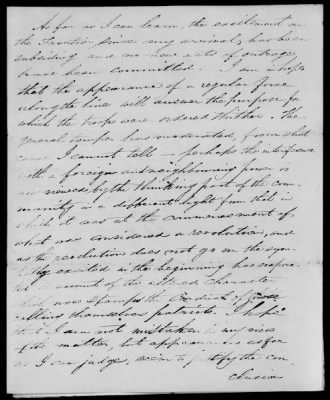 As far as I can learn, the excitement on
the frontier since my arrival, has been
subsiding and no new acts of outrage
have been committed. I am in hopes
that the appearance of a regular force
along the line will answer the purpose for
which the troops were ordered thither. The
general temper has moderated, from what
cause I cannot tell — perhaps the interference
with a foreign and neighbouring power is
now viewed by the thinking part of the com-
munity in a different light from that in
which it was at the commencement of
what was considered a revolution, and
as the revolution does not go on the sym-
pathy excited in the beginning has
account of the altered character
which now stamps the conduct of those
calling themselves patriots. I hope
that I am not mistaken in my views
of the matter, but appearances as far
as I can judge, seem to justify the con-
clusion